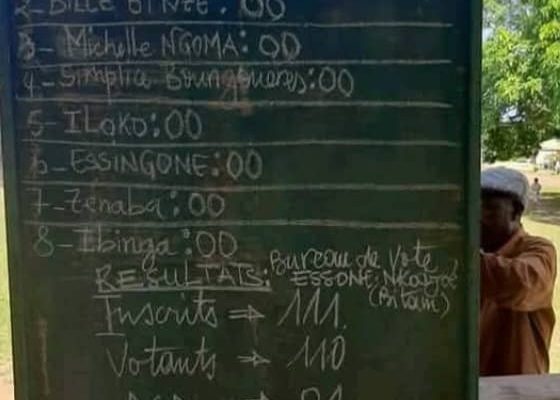 2-BILLE BI NZE: 00
3- Michelle NGOMA: 00
4-Simplice Boungouères:00
5-ILOKO:00
6-ESSINGONE:00
7-Zenaba:00
8-Ibinga:00
RESULTATS: Bureau de Vote
ESSONE-
(Bitam)
Inscrits ⇒ 111.
Votants ⇒ 110